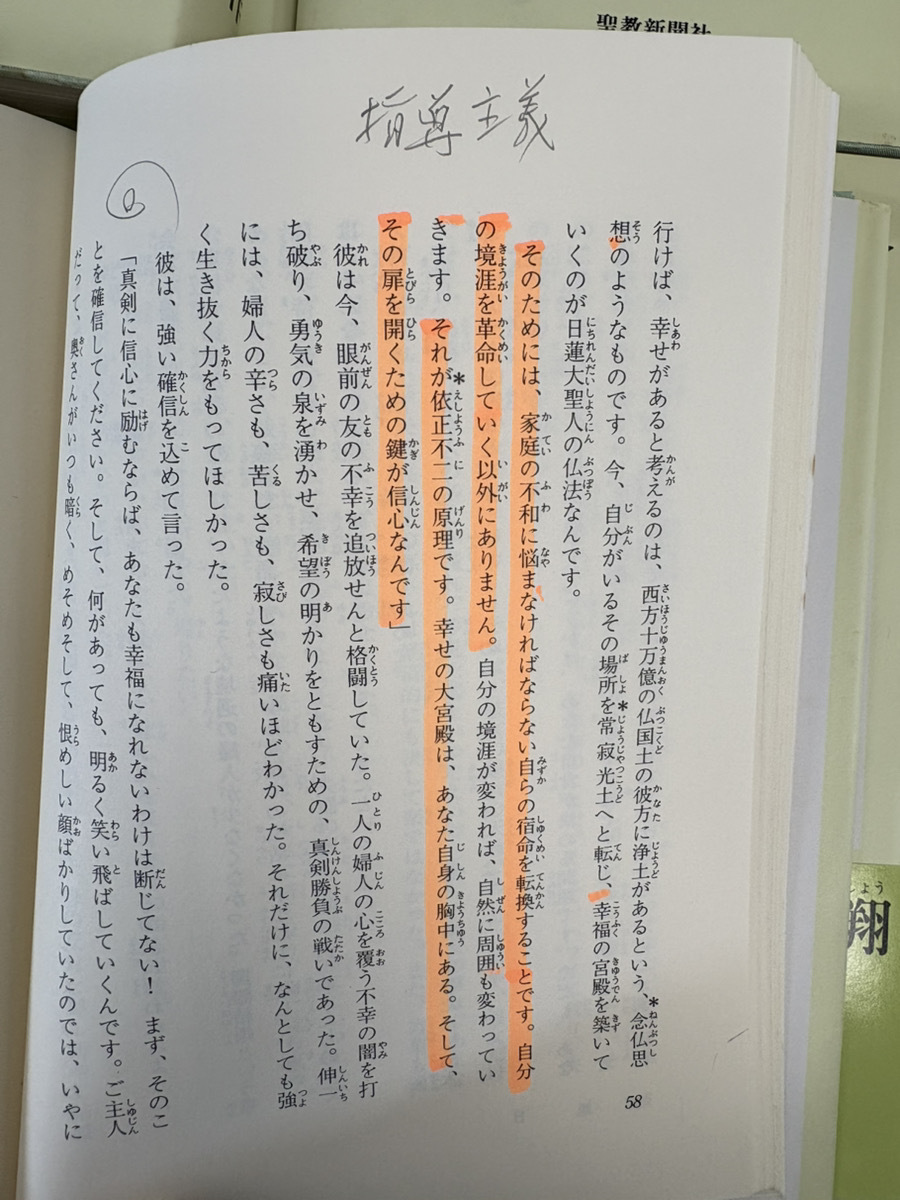 聖教新聞社
指導主義
行けば、幸せがあると考えるのは、西方十万億の仏国土の彼方に浄土があるという、*念仏思
想のようなものです。今、自分がいるその場所を*常寂光土へと転じ、幸福の宮殿を築いて
いくのが日蓮大聖人の仏法なんです。
そのためには、家庭の不和に悩まなければならない自らの宿命を転換することです。自分
の境涯を革命していく以外にありません。自分の境涯が変われば、自然に周囲も変わってい
きます。それが*依正不二の原理です。幸せの大宮殿は、あなた自身の胸中にある。そして、
その扉を開くための鍵が信心なんです」
彼は今、眼前の友の不幸を追放せんと格闘していた。一人の婦人の心を覆う不幸の闇を打
ち破り、勇気の泉を湧かせ、希望の明かりをともすための、真剣勝負の戦いであった。伸一
には、婦人の辛さも、苦しさも、寂しさも痛いほどわかった。それだけに、なんとしても強
く生き抜く力をもってほしかった。
彼は、強い確信を込めて言った。
「真剣に信心に励むならば、あなたも幸福になれないわけは断じてない！　まず、そのこ
とを確信してください。そして、何があっても、明るく笑い飛ばしていくんです。ご主人
だって、奥さんがいつも暗く、めそめそして、恨めしい顔ばかりしていたのでは、いやに
58
翔